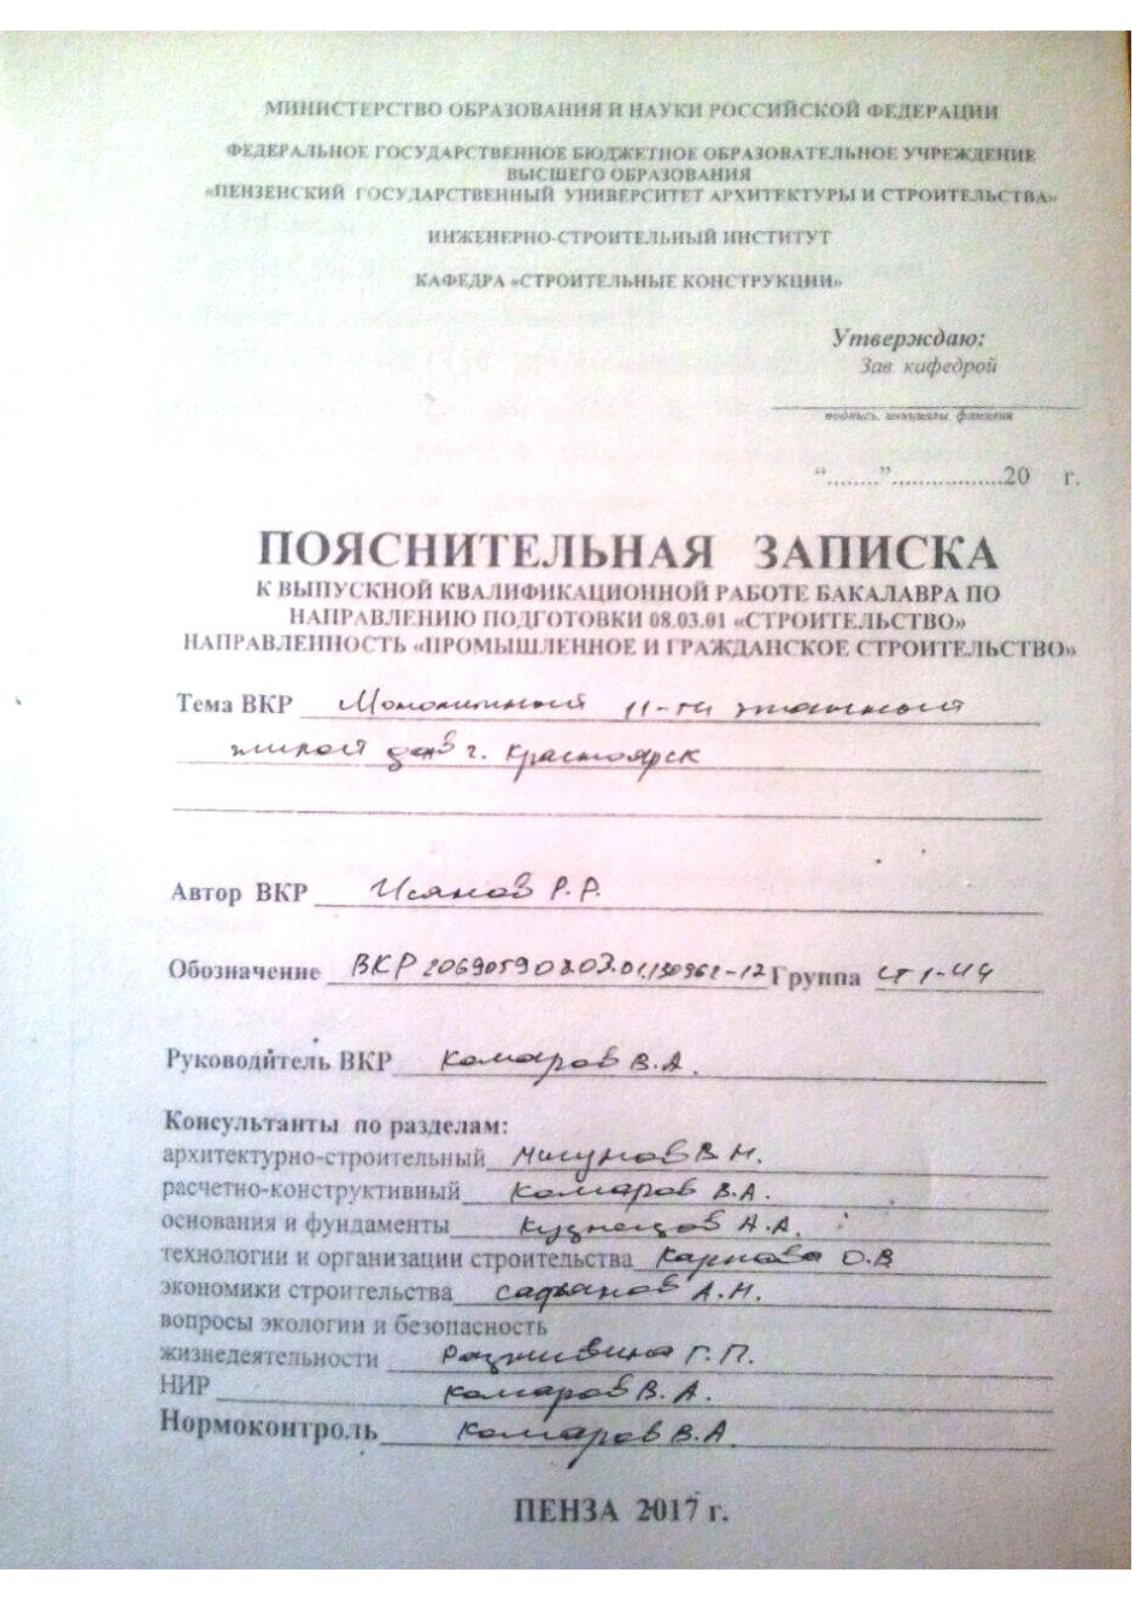 МИНИСТЕРСТВО ОБРАЗОВАНИЯ И НАУКИ РОССИЙСКОЙ ФЕДЕРАЦИИ
ФЕДЕРАЛЬНОЕ ГОСУДАРСТВЕННОЕ БЮДЖЕТНОЕ ОБРАЗОВАТЕЛЬНОЕ УЧРЕЖДЕНИЕ
ВЫСШЕГО ОБРАЗОВАНИЯ
«ПЕНЗЕНСКИЙ ГОСУДАРСТВЕННЫЙ УНИВЕРСИТЕТ АРХИТЕКТУРЫ И СТРОИТЕЛЬСТВА»
ИНЖЕНЕРНО-СТРОИТЕЛЬНЫЙ ИНСТИТУТ
КАФЕДРА «СТРОИТЕЛЬНЫЕ КОНСТРУКЦИИ»
Утверждаю:
Зав. кафедрой
подпись, инициалы, фамилия
“........”.................20 г.
ПОЯСНИТЕЛЬНАЯ ЗАПИСКА
К ВЫПУСКНОЙ КВАЛИФИКАЦИОННОЙ РАБОТЕ БАКАЛАВРА ПО
НАПРАВЛЕНИЮ ПОДГОТОВКИ 08.03.01 «СТРОИТЕЛЬСТВО»
НАПРАВЛЕННОСТЬ «ПРОМЫШЛЕННОЕ И ГРАЖДАНСКОЕ СТРОИТЕЛЬСТВО»
Тема ВКР Монолитный 11-ти этажный
жилой дом в г. Красноярск
Автор ВКР Исянов Р.Р.
Обозначение Группа СТ1-44
Руководитель ВКР Комаров В.А.
Консультанты по разделам:
архитектурно-строительный В.Н.
расчетно-конструктивный Комаров В.А.
основания и фундаменты Кузнецов А.А.
технологии и организации строительства Карпова О.В
экономики строительства Сафьянов А.Н.
вопросы экологии и безопасность
жизнедеятельности Разживина Г.П.
НИР Комаров В.А.
Нормоконтроль Комаров В.А.
ПЕНЗА 2017 г.